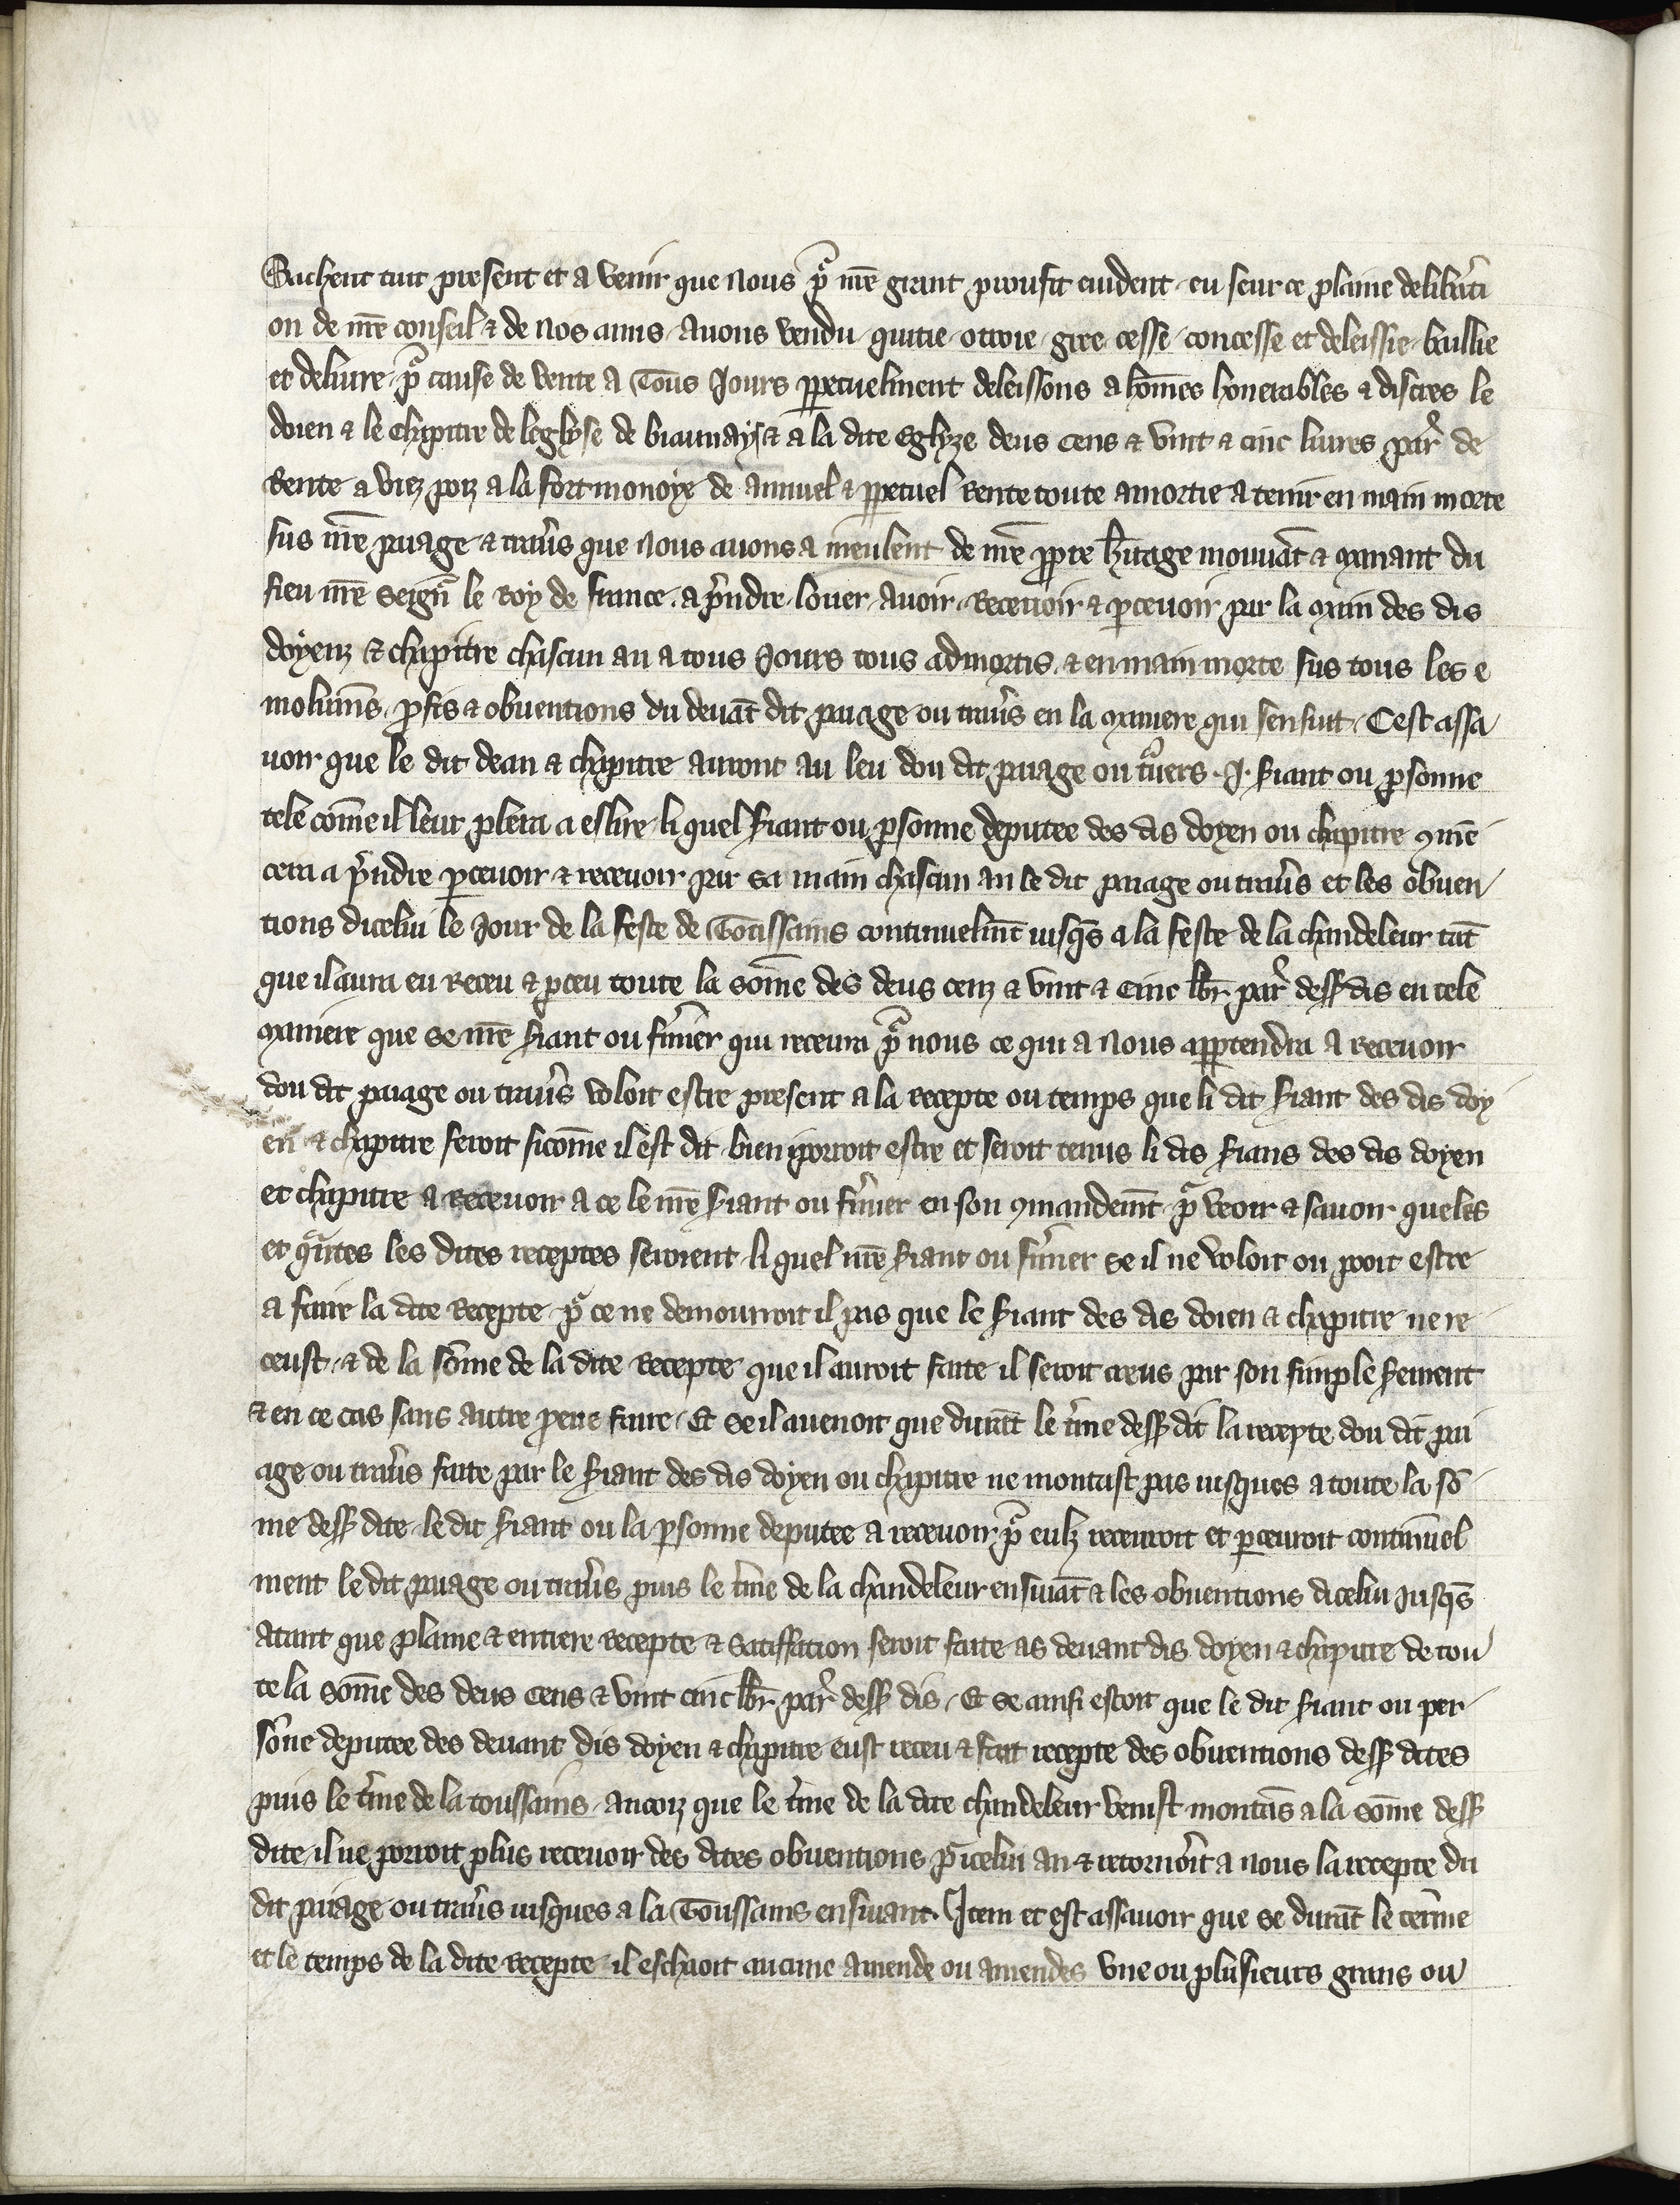 Sachent tuit present et a venir que nous pͣ nr̄e grant proufit euident · eu seur ce plaine deliberati
on de nr̄e conseil & de nos amis · Auons vendu · quitie · otroie · gree · cesse · concesse et deleissie · baillie
et deliure · pͣ cause de vente a Tous Jours ꝑpetuelment deleissons a hōmes honerables & discres le
doien & le chapitre de leglyse de biauuays & a la dite Eglyze deus cens & vint & cinc liures par̄ de
Rente a viez pois a la fort monoye de annuel & ꝑpetuel Rente toute amortie a tenir en main morte
sus nr̄e paage & trau̓s que nous auons a meulent de nr̄e ꝓpre h̓itage mouuāt & manant du
fieu nr̄e Seignͬ le Roy de france · a p̓ndre · louer · auoir · Receuoir & ꝑceuoir par la main des dis
doyenz & chapitre chascun an a tous Jours tous admortis · & en main morte sus tous les e
molumēs · ꝓfis & obuentions du deuāt dit paage ou trau̓s en la maniere qui sensuit · Cest assa
uoir que le dit dean & chapitre auront au leu dou dit paage ou tͣuers · J · s̓iant ou ꝑsonne
tele cōme il leur plera a eslire · li quel s̓iant ou ꝑsonne deputee des dis doyen ou chapitre ꝯmē
cera a p̓ndre ꝑceuoir & receuoir par sa main chascun an le dit paage ou trau̓s et les obuen
tions dicelui le Jour de la feste de Toussains continuelmēt iusqs̄ a la feste de la chandeleur tāt
que il aura eu Receu & ꝑceu toute la sōme des deus cenz & vint & cinc lb̄r par̄ dess dis en tele
maniere que se nr̄e s̓iant ou fm̓ier qui receura pͣ nous ce qui a nous apꝑtendra a receuoir
dou dit paage ou trau̓s voloit estre present a la recepte ou temps que li dit s̓iant des dis doy
en & chapitre seroit sicōme il est dit · bien iporroit estre et seroit tenus li dis s̓ians des dis doyen
et chapitre a Receuoir a ce le nr̄e s̓iant ou fm̓ier en son ꝯmandemēt · pͣ veoir & sauoir queles
et qͣntes les dites receptes seroient · li quel nr̄e s̓iant ou fm̓ier se il ne voloit ou pooit estre
a faire la dite Recepte · pͣ ce ne demourroit il pas que le s̓iant des dis doien & chapitre ne re
ceust · & de la sōme de la dite Recepte que il auroit faite il seroit creus par son simple s̓ement
& en ce cas sans autre preue faire · Et se il auenoit que durāt le t̓me dess dit la recepte dou dit pa
age ou trau̓s faite par le s̓iant des dis doyen ou chapitre ne montast pas iusques a toute la sō
me dess dite · le dit s̓iant ou la ꝑsonne deputee a receuoir pͣ eulz receuroit et ꝑceuroit continuel
ment le dit paage ou trau̓s puis le t̓me de la chandeleur ensiuāt & les obuentions dicelui Jusqs̄
atant que plaine & entiere Recepte & Satiffation seroit faite as deuant dis doyen & chapitre de tou
te la sōme des deus cens & vint cinc lb̄r par̄ dess dis · Et se ainsi estoit que le dit s̓iant ou per
sōne deputee des deuant dis doyen & chapitre eust receu & fait recepte des obuentions dess dites
puis le t̓me de la toussains · ancoiz que le t̓me de la dite chandeleur venist montās a la sōme dess
dite · il ne porroit plus receuoir des dites obuentions pͣ icelui an & retorn̓oit a nous la recepte du
dit paage ou trau̓s iusques a la Toussains ensiuant · Item et est assauoir que se durāt le terme
et le temps de la dite Recepte · il escheoit aucune amende ou amendes vne ou plusieurs grans ou